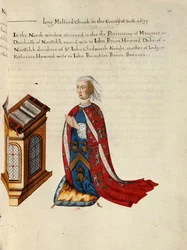 Long Melford Church in the County of Suff. 1637
In the North window adjoyned is also the Portraiture of Margaret
Dutchesse of Norffolk second wife to John Baron Howard Duke of
Norffolk daughter of Sr John Chedworth Knight, mother of Lady
Katherine Howard wife to John Bourchier Baron Berners.